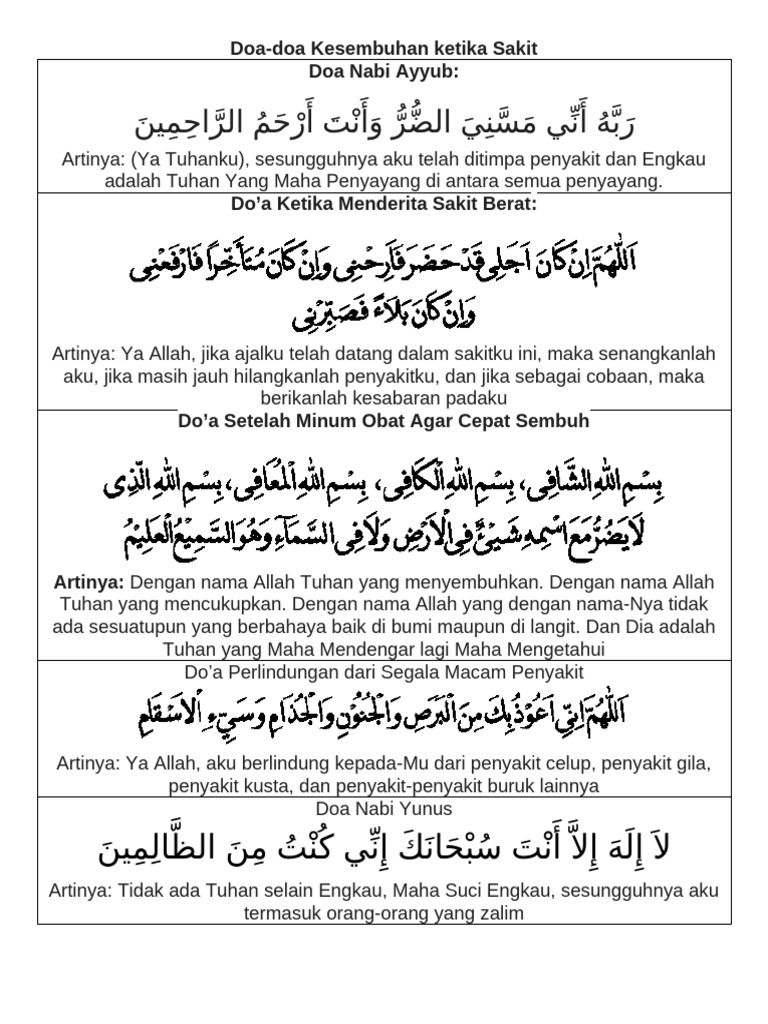 Doa-doa Kesembuhan ketika Sakit
Doa Nabi Ayyub:
رَبَّهُ أَنِّي مَسَّنِيَ الضُّرُّ وَأَنْتَ أَرْحَمُ الرَّاحِمِينَ
Artinya: (Ya Tuhanku), sesungguhnya aku telah ditimpa penyakit dan Engkau
adalah Tuhan Yang Maha Penyayang di antara semua penyayang.
Do’a Ketika Menderita Sakit Berat:
اَللّٰهُمَّ اِنْ كَانَ اَجَلِى قَدْ حَضَرَ فَاَرِحْنِى وَاِنْ كَانَ مُتَأَخِّرًا فَارْفَعْنِى
وَاِنْ كَانَ بَلَاءً فَصَبِّرْنِى
Artinya: Ya Allah, jika ajalku telah datang dalam sakitku ini, maka senangkanlah
aku, jika masih jauh hilangkanlah penyakitku, dan jika sebagai cobaan, maka
berikanlah kesabaran padaku
Do’a Setelah Minum Obat Agar Cepat Sembuh
بِسْمِ اللهِ الشَّافِى، بِسْمِ اللهِ الْكَافِى، بِسْمِ اللهِ الْمُعَافِى، بِسْمِ اللهِ الَّذِى
لَا يَضُرُّ مَعَ اسْمِهِ شَيْئٌ فِى الْاَرْضِ وَلَا فِى السَّمَآءِ وَهُوَ السَّمِيْعُ الْعَلِيْمُ
Artinya: Dengan nama Allah Tuhan yang menyembuhkan. Dengan nama Allah
Tuhan yang mencukupkan. Dengan nama Allah yang dengan nama-Nya tidak
ada sesuatupun yang berbahaya baik di bumi maupun di langit. Dan Dia adalah
Tuhan yang Maha Mendengar lagi Maha Mengetahui
Do’a Perlindungan dari Segala Macam Penyakit
اَللّٰهُمَّ اِنِّى اَعُوْذُ بِكَ مِنَ الْبَرَصِ وَالْجُنُوْنِ وَالْجُذَامِ وَسَيِّءِ الْاَسْقَامِ
Artinya: Ya Allah, aku berlindung kepada-Mu dari penyakit celup, penyakit gila,
penyakit kusta, dan penyakit-penyakit buruk lainnya
Doa Nabi Yunus
لاَ إِلَهَ إِلاَّ أَنْتَ سُبْحَانَكَ إِنِّي كُنْتُ مِنَ الظَّالِمِينَ
Artinya: Tidak ada Tuhan selain Engkau, Maha Suci Engkau, sesungguhnya aku
termasuk orang-orang yang zalim